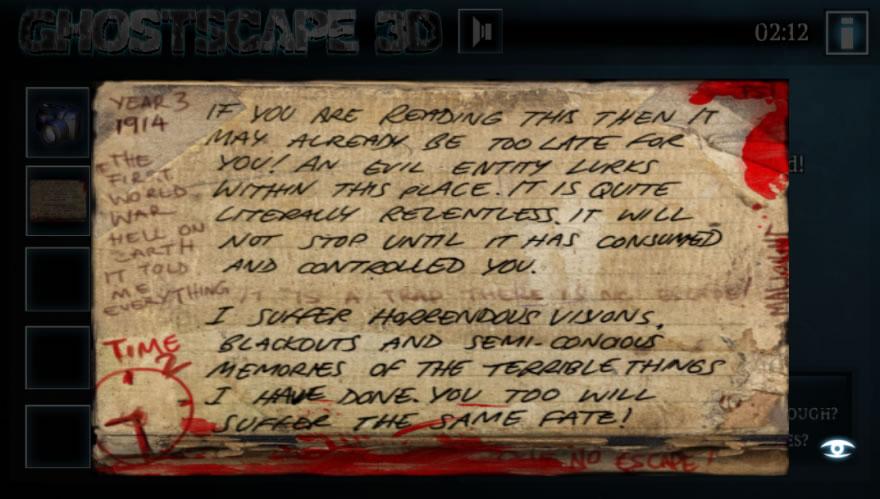 GHOSTSCAPE 3D
02:12
YEAR 3
1914
THE
FIRST
WORLD
WAR
HELL ON
EARTH
IT TOLD
ME
EVERYTHING
IF YOU ARE READING THIS THEN IT
MAY ALREADY BE TOO LATE FOR
YOU! AN EVIL ENTITY LURKS
WITHIN THIS PLACE. IT IS QUITE
LITERALLY RELENTLESS. IT WILL
NOT STOP UNTIL IT HAS CONSUMED
AND CONTROLLED YOU.
IT IS A TRAP THERE IS NO ESCAPE!
I SUFFER HORRENDOUS VISIONS,
BLACKOUTS AND SEMI-CONCIOUS
MEMORIES OF THE TERRIBLE THINGS
I HAVE DONE. YOU TOO WILL
SUFFER THE SAME FATE!
TIME
NO ESCAPE!
d!
OUGH?
ES?